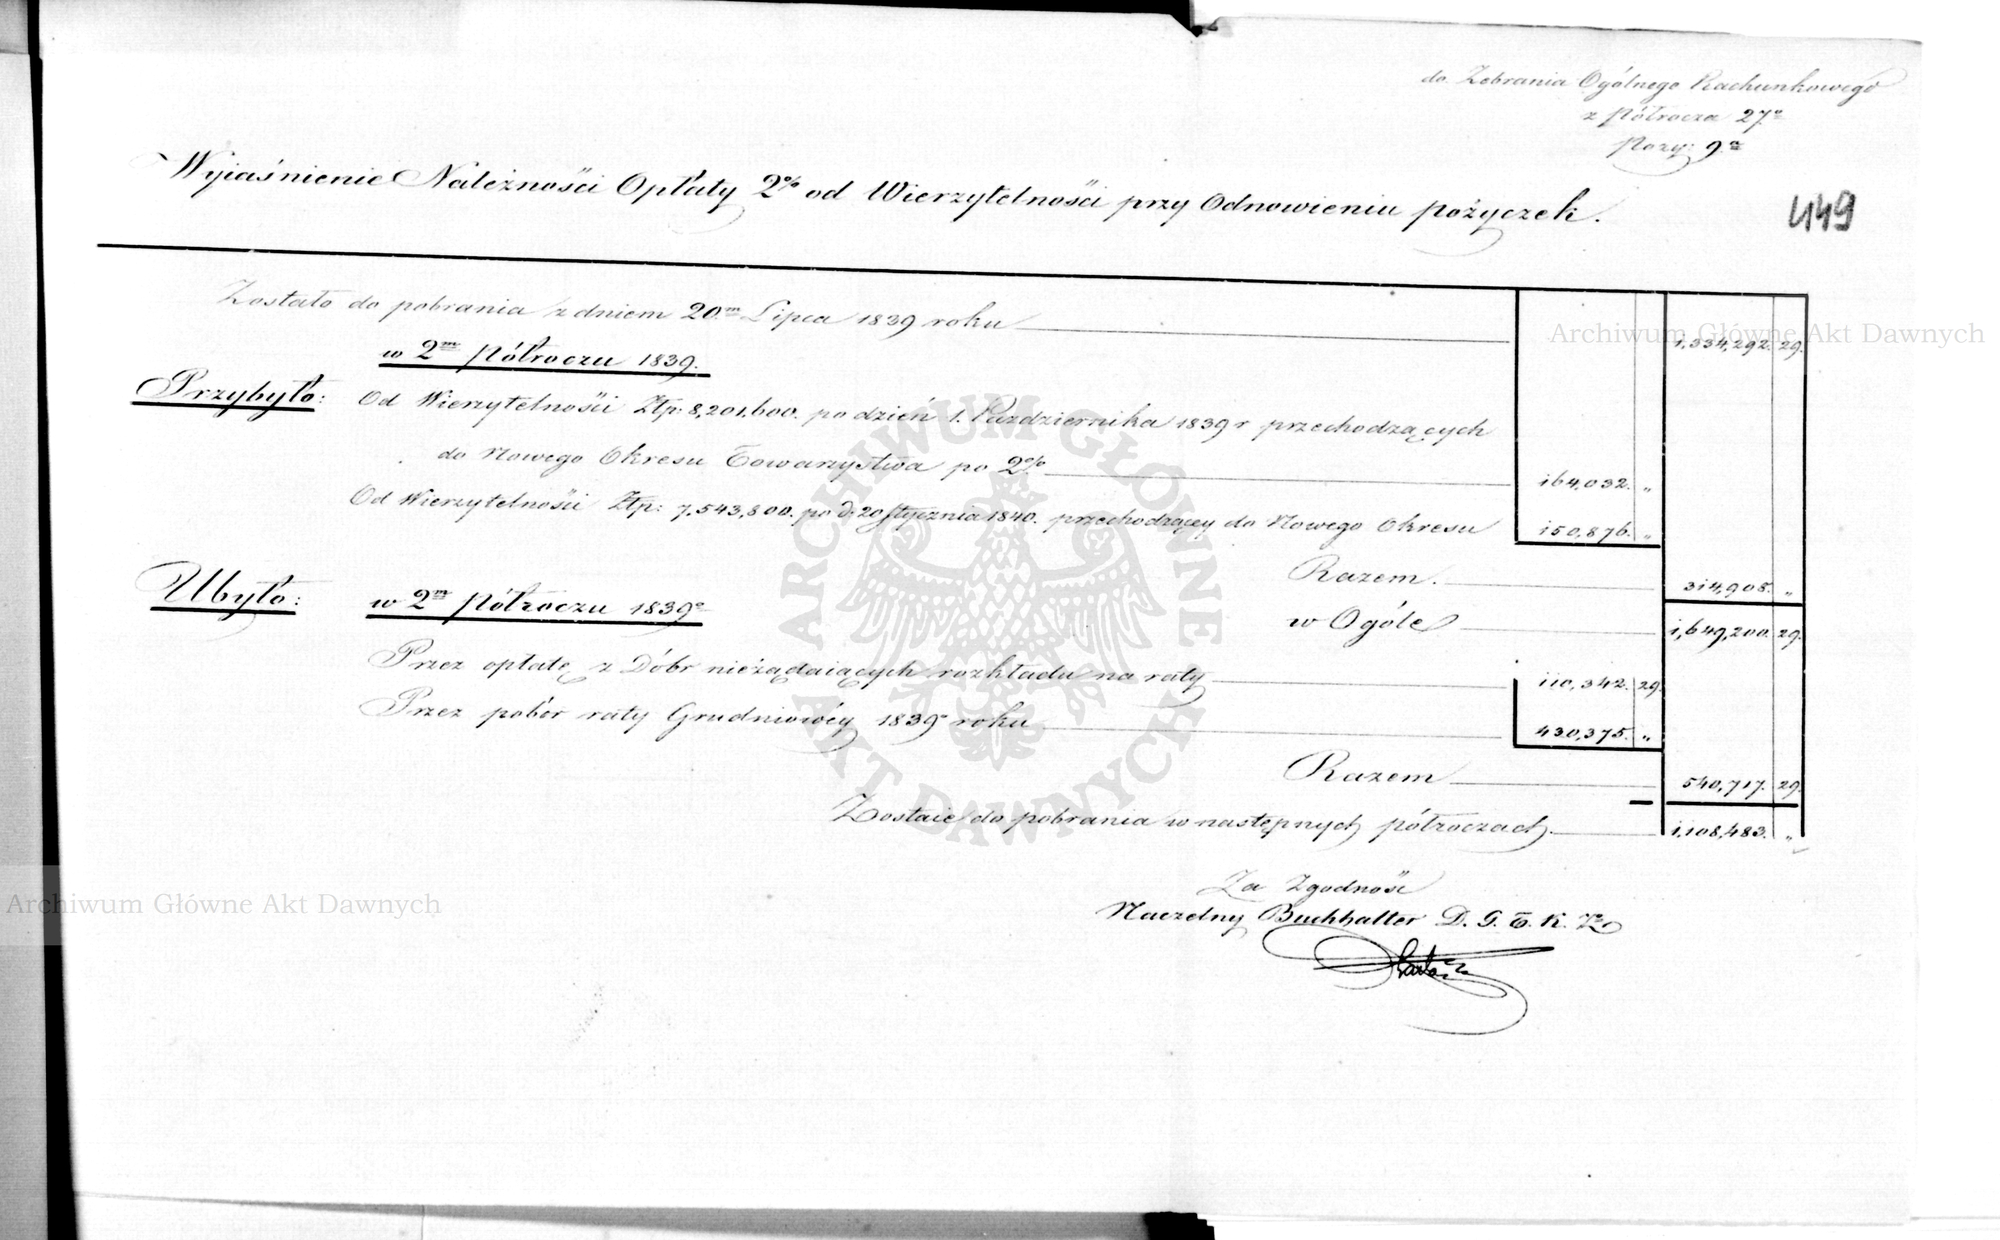 do Zebrania Ogólnego Rachunkowego
z Półrocza 27º
Pozy: 9ª
449
Wyiaśnienie Należności Opłaty 2% od Wierzytelności przy Odnowieniu pożyczek.
Zostało do pobrania z dniem 20m Lipca 1839 roku 1,334,292. 29.
w 2m Półroczu 1839.
Przybyło: Od Wierzytelności Złp: 8,201,600. po dzień 1. Pazdziernika 1839 r przechodzących
do Nowego Okresu Towarzystwa po 2% 164,032. „
Od Wierzytelności Złp: 7,543,800. po d: 20 Stycznia 1840. przechodzącey do Nowego Okresu 150,876. „
Razem. 314,908. „
Ubyło: w 2m Półroczu 1839º w Ogóle 1,649,200. 29.
Przez opłatę z Dóbr nieżądaiących rozkładu na raty 110,342. 29.
Przez pobór raty Grudniowéy 1839º roku 430,375. „
Razem 540,717. 29.
Zostaie do pobrania w następnych półroczach 1,108,483. „
Za Zgodność
Naczelny Buchhalter D. G. T. K. Zº
Archiwum Główne Akt Dawnych
Archiwum Główne Akt Dawnych
ARCHIWUM GŁÓWNE AKT DAWNYCH